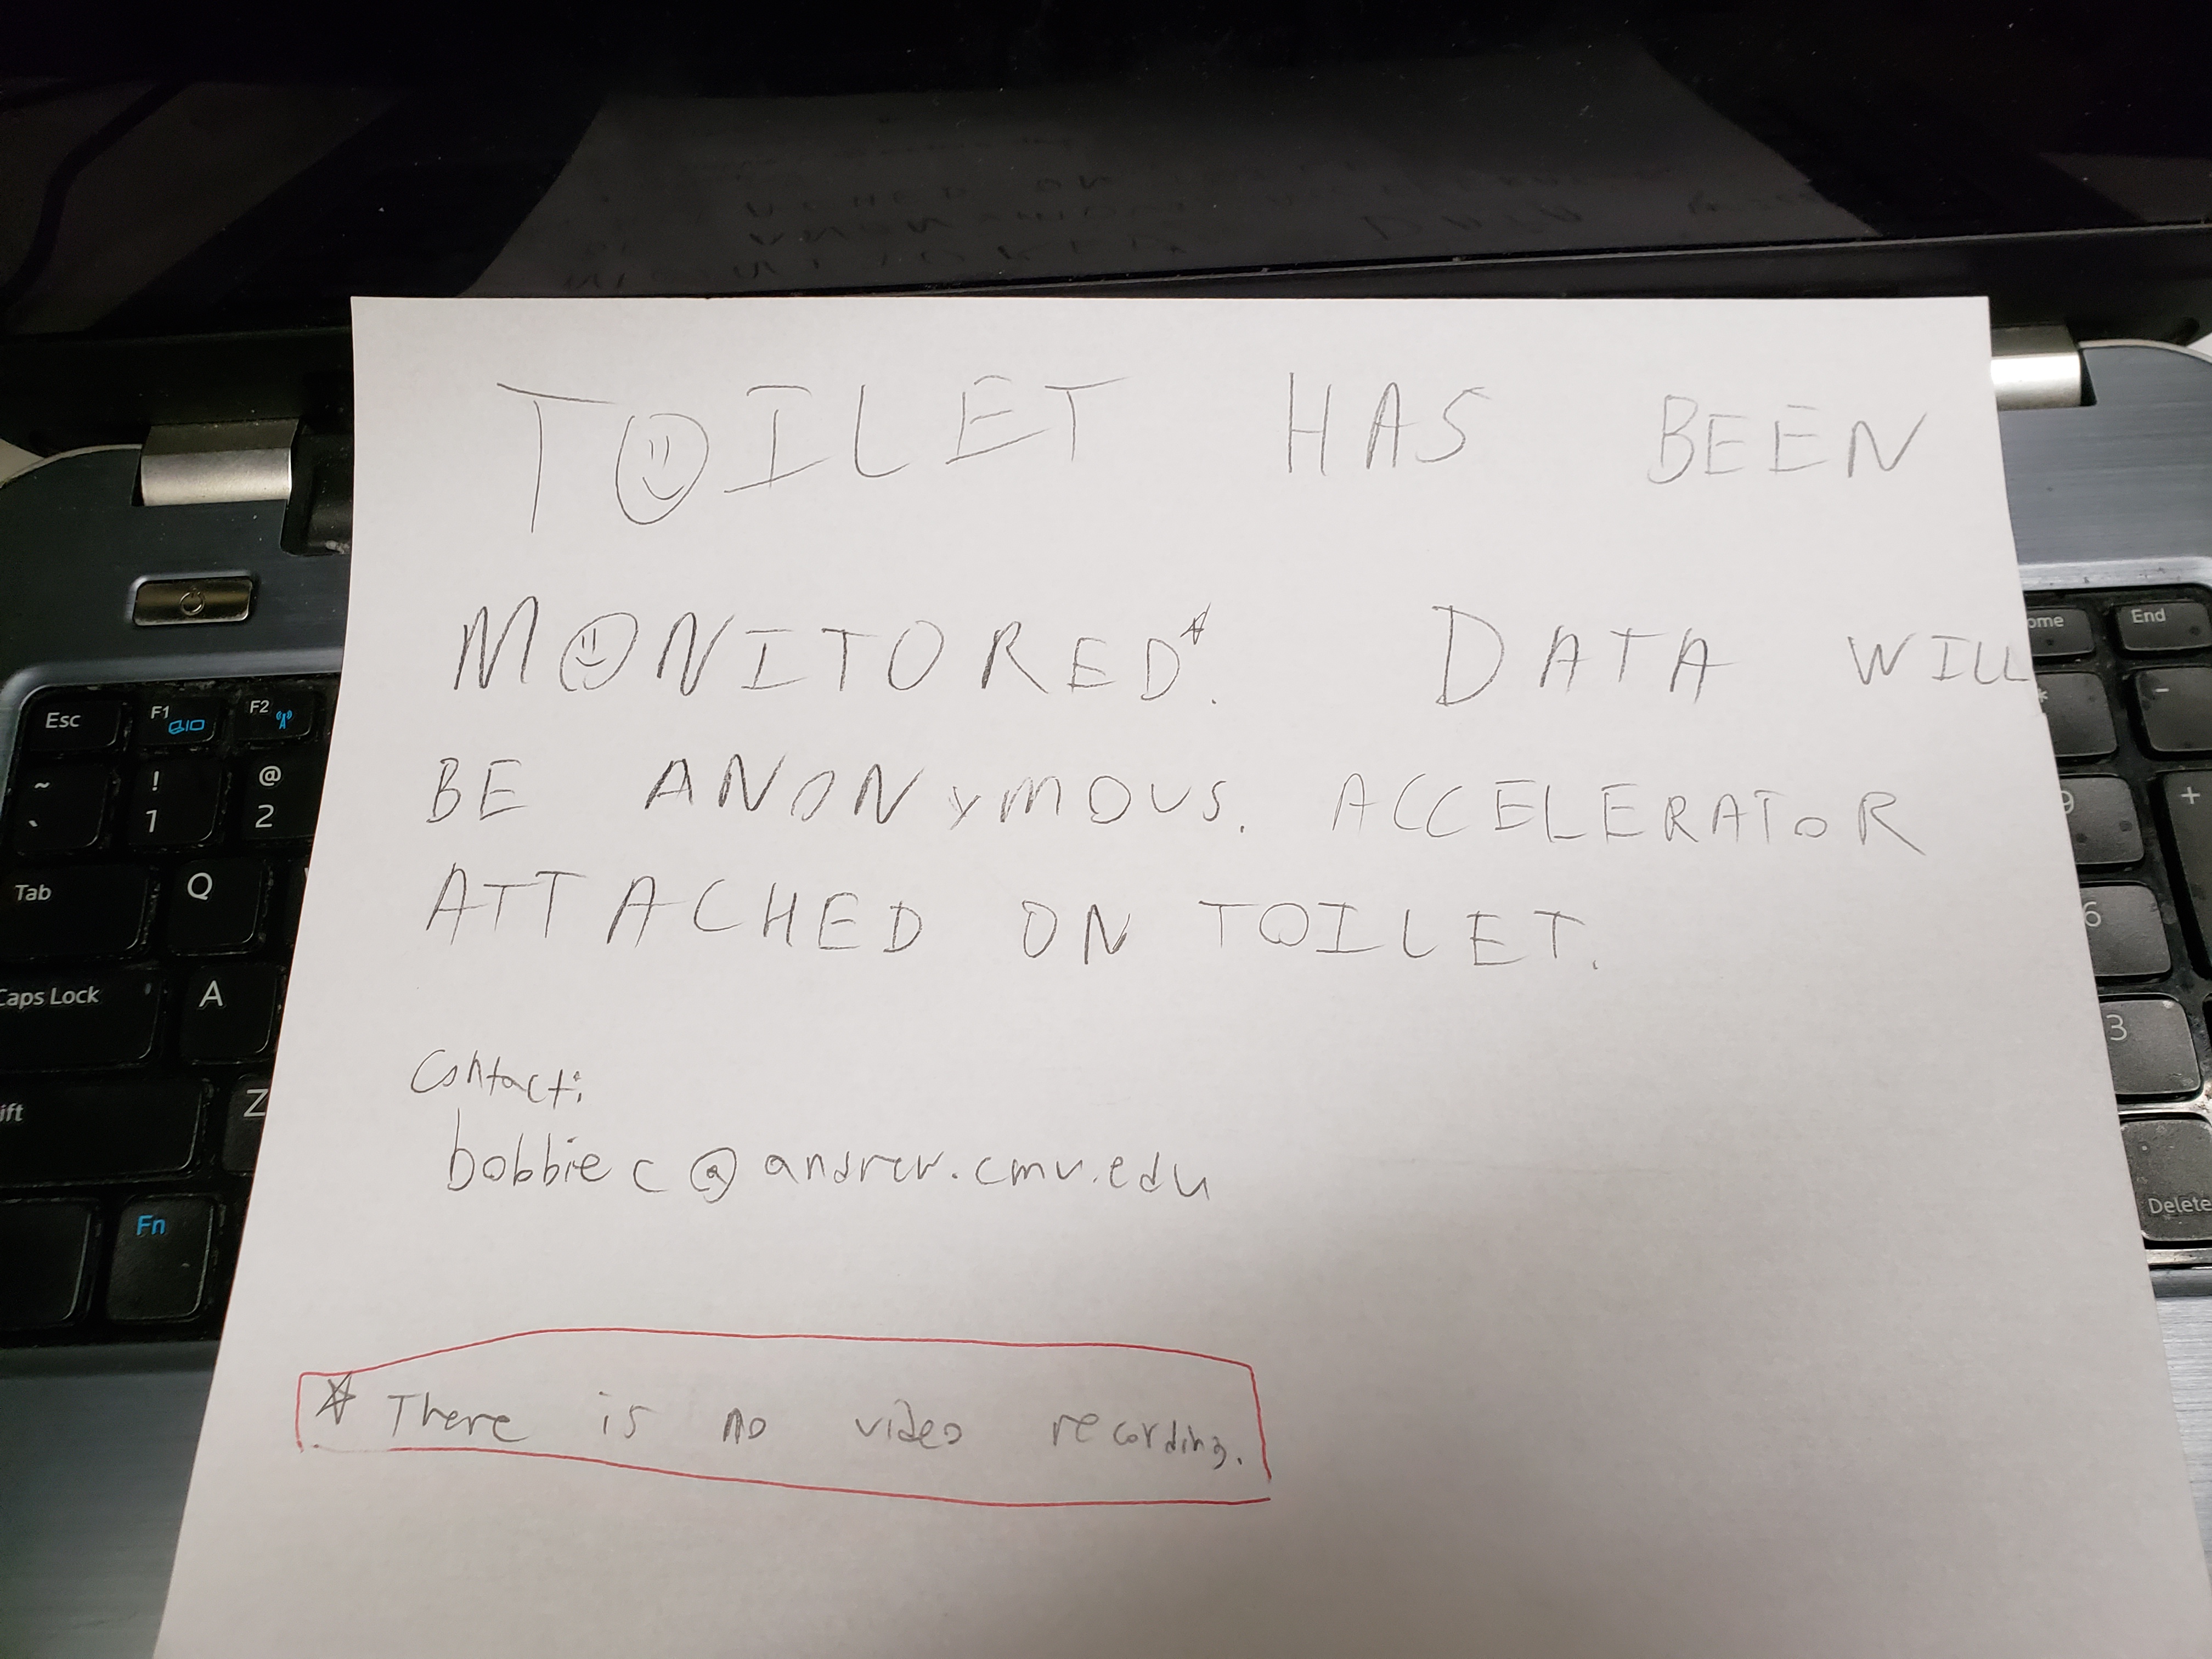 TOILET HAS BEEN
MONITORED*. DATA WILL
BE ANONYMOUS. ACCELERATOR
ATTACHED ON TOILET.
Contact:
bobbiec@andrew.cmu.edu
* There is no video recording.
Esc
F1
F2
~
`
!
1
@
2
Tab
Q
Caps Lock
A
ift
Z
Fn
ome
End
*
-
9
+
6
3
.
Delete